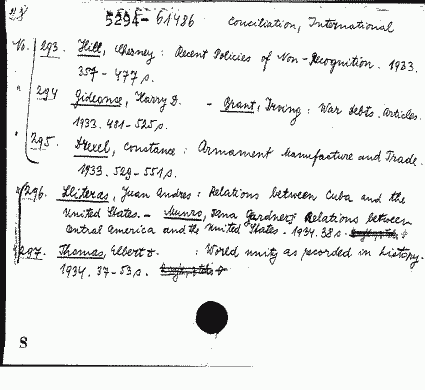 5294- 61486 Conciliation, International
No. 293. Hill, Cherney: Recent Policies of Non-Recognition. 1933.
357-477 s.
" 294 Gideonse, Harry D. - Grant, Irving: War debts. Articles.
1933. 481-525 s.
" 295. Drexel, Constance: Armament Manufacture and Trade.
1933. 529-551 s.
296. Lliteras, Juan Andres: Relations between Cuba and the
United States. - Munro, Dana Gardner: Relations between
Central America and the United States. - 1934. 38 s.
297. Thomas, Elbert D. : World unity as recorded in history.
1934. 37-53 s.
8